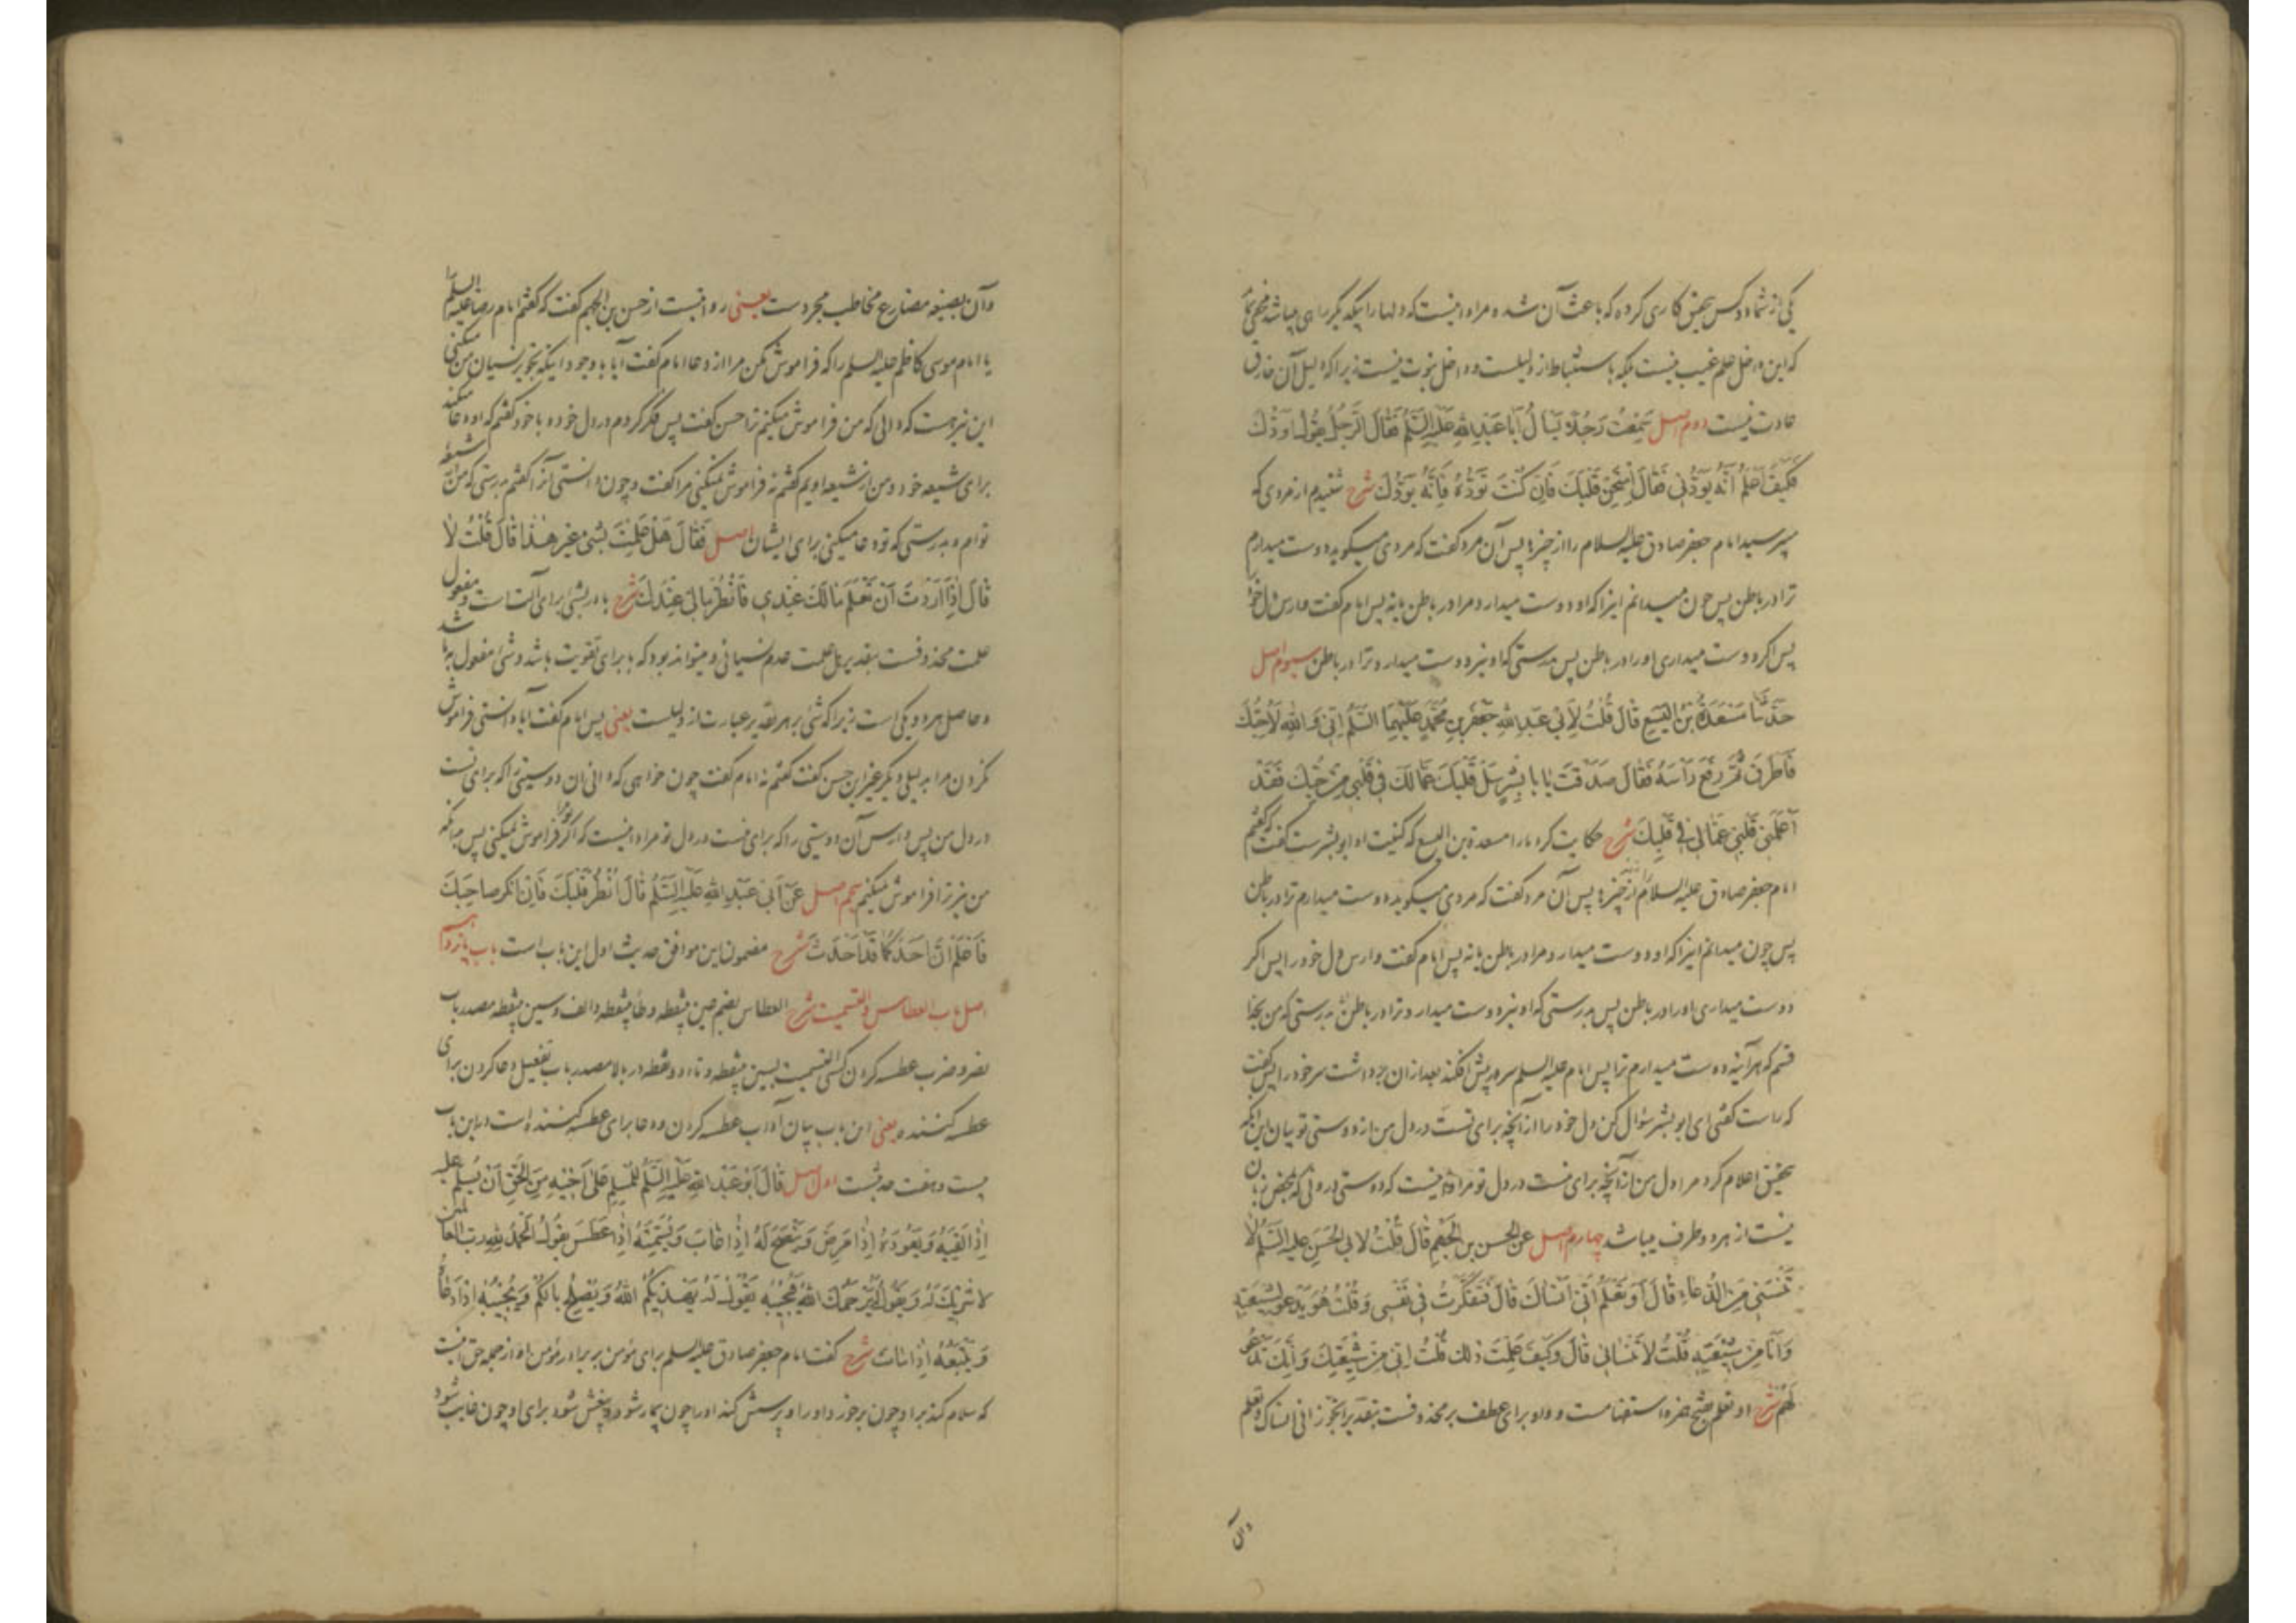 یکی از شما دو کس بتحقیق کاری کرده که باعث آن شده مراد اینست که دلها را بیکدیگر راهی میباشد مخفی نماند
که این داخل علم غیب نیست بلکه باستنباط از دلیلست و داخل نبوت نیست زیرا که دلیل آن خارق
عادت نیست دوم اصل سَمِعْتُ رَجُلًا یَسْأَلُ أَبَا عَبْدِاللهِ عَلَیْهِ السَّلَمُ فَقَالَ الرَّجُلُ یَقُولُ اَوَدُّكَ
فَكَیْفَ اَعْلَمُ اَنَّهُ یَوَدُّنِی فَقَالَ اِمْتَحِنْ قَلْبَكَ فَاِنْ كُنْتَ تَوَدُّهُ فَاِنَّهُ یَوَدُّكَ شرح شنیدم از مردی که
میپرسید امام جعفر صادق علیه السلام را از چیزها پس آن مرد گفت که مردی میگوید دوست میدارم
ترا در باطن پس چون میدانم اینرا که او دوست میدارد مرا در باطن یا نه پس امام گفت وارس دل خود
پس اگر دوست میداری او را در باطن پس بدرستی که او نیز دوست میدارد ترا در باطن سیوم اصل
حَدَّثَنَا مَسْعَدَةُ بْنُ الْیَسَعِ قَالَ قُلْتُ لِاَبِی عَبْدِ اللهِ جَعْفَرِ بْنِ مُحَمَّدٍ عَلَیْهِمَا السَّلَمُ اِنِّی وَاللهِ لَاُحِبُّكَ
فَاَطْرَقَ ثُمَّ رَفَعَ رَأسَهُ فَقَالَ صَدَقْتَ یَا بَا بِشْرٍ سَلْ قَلْبَكَ عَمَّا لَكَ فِی قَلْبِی مِنْ حُبِّكَ فَقَدْ
اَعْلَمَنِی قَلْبِی عَمَّا لِی فِی قَلْبِكَ شرح حکایت کرد ما را مسعدة بن الیسع که کنیت او ابو بشرست گفت که گفتم
امام جعفر صادق علیه السلام را از چیزها پس آن مرد گفت که مردی میگوید دوست میدارم ترا در باطن
پس چون میدانم اینرا که او دوست میدارد مرا در باطن یا نه پس امام گفت وارس دل خود را پس اگر
دوست میداری او را در باطن پس بدرستی که او نیز دوست میدارد ترا در باطن بدرستی که من بخدا
قسم که هرآینه دوست میدارم ترا پس امام علیه السلم سر در پیش افکند بعد از آن برداشت سر خود را پس گفت
که راست گفتی ای ابو بشر سؤال کن دل خود را از آنچه برای تست در دل من از دوستی تو بیان این آنکه
بتحقیق اعلام کرد مرا دل من از آنچه برای منست در دل تو مراد اینست که دوستی درونی که بمحض زبان
نیست از هر دو طرف میباشد چهارم اصل عَنِ الْحَسَنِ بْنِ الْجَهْمِ قَالَ قُلْتُ لِاَبِی الْحَسَنِ عَلَیْهِ السَّلَمُ لَا
تَنْسَنِی مِنَ الدُّعَاءِ قَالَ اَوَتَعْلَمُ اَنِّی اَنْسَاكَ قَالَ فَتَفَكَّرْتُ فِی نَفْسِی وَقُلْتُ هُوَ یَدْعُو لِشِیعَتِهِ
وَاَنَا مِنْ شِیعَتِهِ قُلْتُ لَا تَنْسَانِی قَالَ وَكَیْفَ عَلِمْتَ ذٰلِكَ قُلْتُ اِنِّی مِنْ شِیعَتِكَ وَاِنَّكَ تَدْعُو
لَهُمْ شرح اوتعلم بفتح همزه استفهامست و واو برای عطف بر محذوفست بتقدیر اتجوز انی انساک و تعلم
وآن
وآن بصیغه مضارع مخاطب مجردست یعنی روایتست از حسن بن الجهم گفت که گفتم امام رضا علیه السلم را
یا امام موسی کاظم علیه السلم را که فراموش مکن مرا از دعا امام گفت آیا با وجود اینکه تجویز نسیان من میکنی
این نیز هست که دانی که من فراموش میکنم ترا حسن گفت پس فکر کردم در دل خود و با خود گفتم که او دعا میکند
برای شیعه خود و من از شیعه اویم گفتم نه فراموش نمیکنی مرا گفت و چون دانستی آنرا گفتم بدرستی که من از شیعه
توام و بدرستی که تو دعا میکنی برای ایشان اصل فَقَالَ هَلْ عَلِمْتَ بِشَیْءٍ غَیْرِ هٰذَا قَالَ قُلْتُ لَا
قَالَ اِذَا اَرَدْتَ اَنْ تَعْلَمَ مَا لَكَ عِنْدِی فَانْظُرْ مَا لِی عِنْدَكَ شرح با در بشئ برای آلتست و مفعول
علمت محذوفست بتقدیر هل علمت عدم نسیانی و میتواند بود که با برای تقویت باشد و شئ مفعول به باشد
و حاصل هر دو یکی است زیرا که شئ بر هر تقدیر عبارت از دلیلست یعنی پس امام گفت آیا دانستی فراموش
نکردن مرا بدلیلی دیگر غیر این حسن گفت گفتم نه امام گفت چون خواهی که دانی آن دوستیی را که برای تست
در دل من پس وارس آن دوستیی را که برای منست در دل تو مراد اینست که اگر تو مرا فراموش نمیکنی پس بدانکه
من نیز ترا فراموش نمیکنم پنجم اصل عَنْ اَبِی عَبْدِ اللهِ عَلَیْهِ السَّلَمُ قَالَ اُنْظُرْ قَلْبَكَ فَاِنْ اَنْكَرَ صَاحِبَكَ
فَاعْلَمْ اَنَّ اَحَدَكُمَا قَدْ اَحْدَثَ شرح مضمون این موافق حدیث اول این باب است باب پانزدهم
اصل باب العطاس و التسمیت شرح العطاس بضم عین بینقطه و طاء بینقطه و الف و سین بینقطه مصدر باب
نصر و ضرب عطسه کردن کسی التسمیت بسین بینقطه و تاء دو نقطه در بالا مصدر باب تفعیل دعا کردن برای
عطسه کننده یعنی این باب بیان آداب عطسه کردن و دعا برای عطسه کننده است در این باب
بیست و هفت حدیثست اول اصل قَالَ اَبُو عَبْدِ اللهِ عَلَیْهِ السَّلَمُ لِلْمُسْلِمِ عَلٰی اَخِیْهِ مِنَ الْحَقِّ اَنْ یُسَلِّمَ علیه
اِذَا لَقِیَهُ وَیَعُودَهُ اِذَا مَرِضَ وَیَنْصَحَ لَهُ اِذَا غَابَ وَیُسَمِّتَهُ اِذَا عَطَسَ یَقُولُ الْحَمْدُ لِلّٰهِ رَبِّ العالمین
لَا شَرِیْكَ لَهُ وَیَقُولُ یَرْحَمُكَ اللهُ فَیُجِیْبُهُ یَقُوْلُ لَهُ یَهْدِیْكُمُ اللهُ وَیُصْلِحُ بَالَكُمْ وَیُجِیْبَهُ اِذَا دَعَاهُ
وَیَتْبَعَهُ اِذَا مَاتَ شرح گفت امام جعفر صادق علیه السلم برای مؤمن بر برادر مؤمن او از جمله حق اینست
که سلام کند بر او چون برخورد او را و پرسش کند او را چون بیمار شود و بیغش شود برای او چون غایب شود